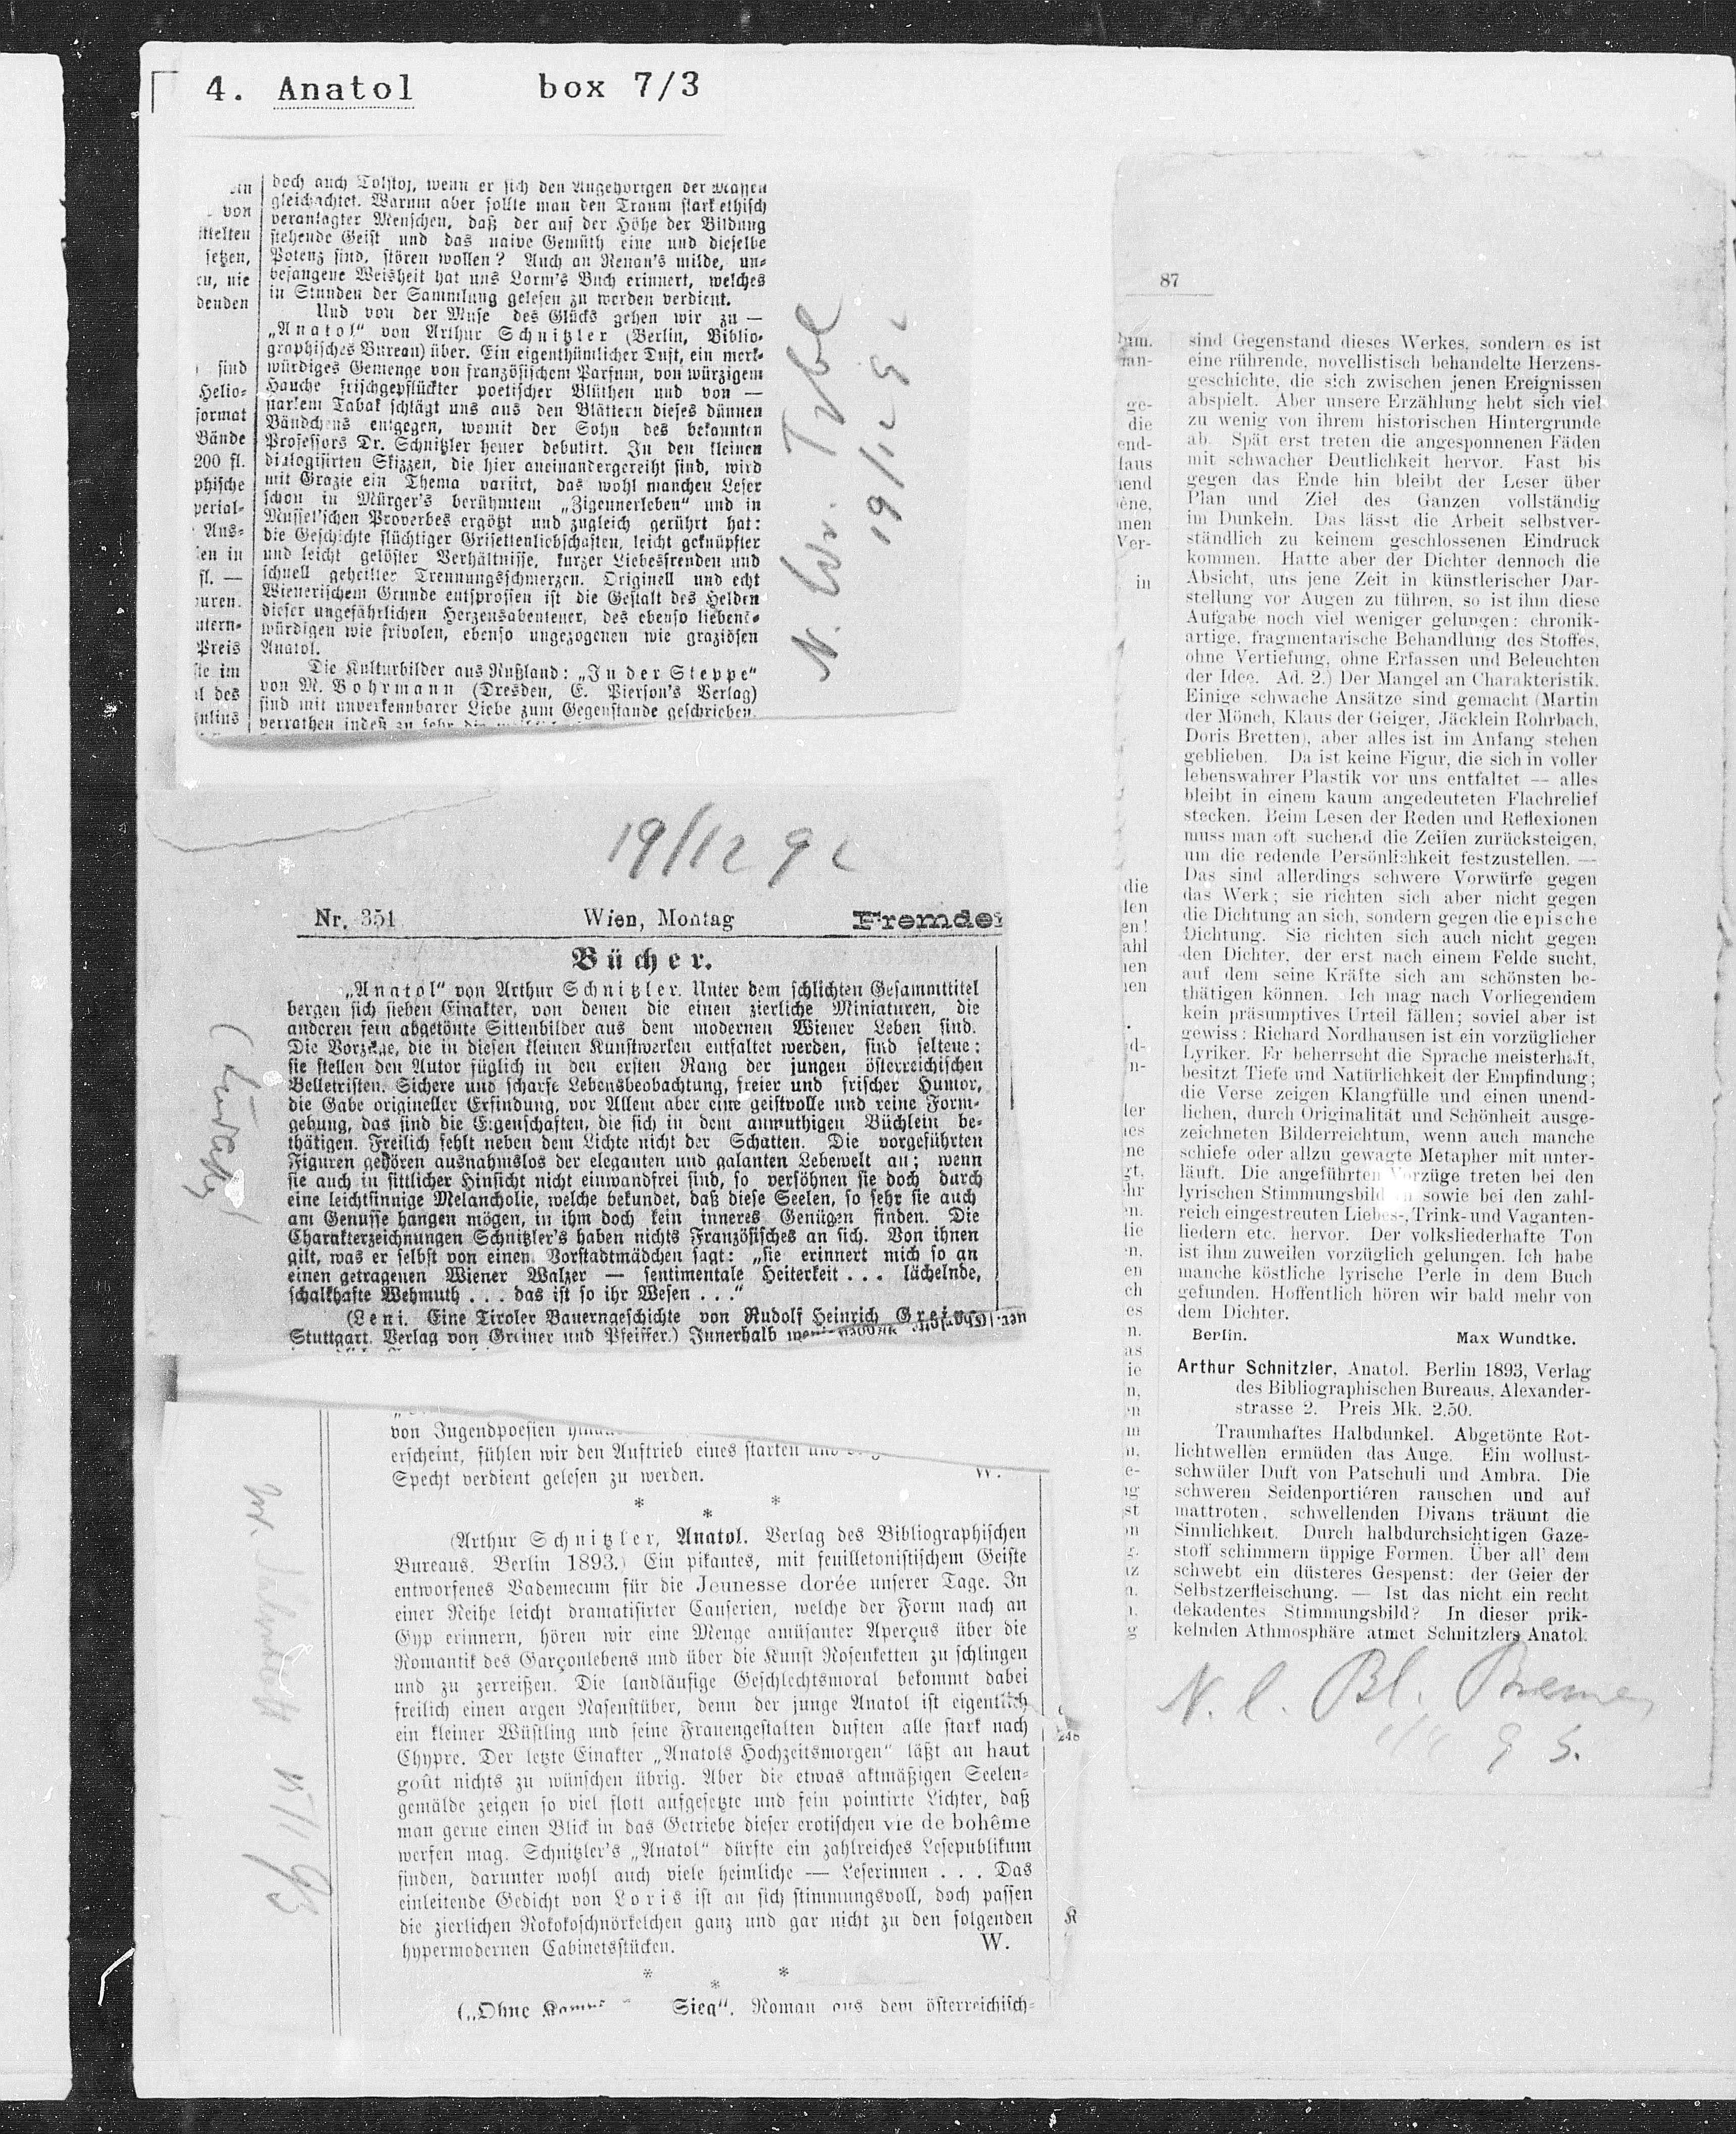 4. Anatol box 7/3
ein
von
ittelten
setzen,
en, nie
denden
sind
Helio-
format
Bände
200 fl.
phische
perial-
Aus-
en in
fl. —
uren.
ntern-
Preis
ie im
l des
ulius
doch auch Tolstoj, wenn er sich den Angehörigen der Massen
gleichachtet. Warum aber sollte man den Traum stark ethisch
veranlagter Menschen, daß der auf der Höhe der Bildung
stehende Geist und das naive Gemüth eine und dieselbe
Potenz sind, stören wollen? Auch an Renan's milde, un-
befangene Weisheit hat uns Lorm's Buch erinnert, welches
in Stunden der Sammlung gelesen zu werden verdient.
Und von der Muse des Glücks gehen wir zu —
„Anatol" von Arthur Schnitzler (Berlin, Biblio-
graphisches Bureau) über. Ein eigenthümlicher Duft, ein merk-
würdiges Gemenge von französischem Parfum, von würzigem
Hauche frischgepflückter poetischer Blüthen und von —
starkem Tabak schlägt uns aus den Blättern dieses dünnen
Bändchens entgegen, womit der Sohn des bekannten
Professors Dr. Schnitzler heuer debutirt. In den kleinen
dialogisirten Skizzen, die hier aneinandergereiht sind, wird
mit Grazie ein Thema variirt, das wohl manchen Leser
schon in Mürger's berühmtem „Zigeunerleben" und in
Musset'schen Proverbes ergötzt und zugleich gerührt hat:
die Geschichte flüchtiger Grisettenliebschaften, leicht geknüpfter
und leicht gelöster Verhältnisse, kurzer Liebesfreuden und
schnell geheilter Trennungsschmerzen. Originell und echt
Wienerischem Grunde entsprossen ist die Gestalt des Helden
dieser ungefährlichen Herzensabenteuer, des ebenso liebens-
würdigen wie frivolen, ebenso ungezogenen wie graziösen
Anatol.
Die Kulturbilder aus Rußland: „In der Steppe"
von M. Bohrmann (Dresden, E. Pierson's Verlag)
sind mit unverkennbarer Liebe zum Gegenstande geschrieben,
verrathen indeß zu sehr die
N. Wr. Tgbl
19/12 92
19/12 92
Nr. 351 Wien, Montag Fremde
Bücher.
„Anatol" von Arthur Schnitzler. Unter dem schlichten Gesammttitel
bergen sich sieben Einakter, von denen die einen zierliche Miniaturen, die
anderen fein abgetönte Sittenbilder aus dem modernen Wiener Leben sind.
Die Vorzüge, die in diesen kleinen Kunstwerken entfaltet werden, sind seltene;
sie stellen den Autor füglich in den ersten Rang der jungen österreichischen
Belletristen. Sichere und scharfe Lebensbeobachtung, freier und frischer Humor,
die Gabe origineller Erfindung, vor Allem aber eine geistvolle und reine Form-
gebung, das sind die Eigenschaften, die sich in dem anmuthigen Büchlein be-
thätigen. Freilich fehlt neben dem Lichte nicht der Schatten. Die vorgeführten
Figuren gehören ausnahmslos der eleganten und galanten Lebewelt an; wenn
sie auch in sittlicher Hinsicht nicht einwandfrei sind, so versöhnen sie doch durch
eine leichtsinnige Melancholie, welche bekundet, daß diese Seelen, so sehr sie auch
am Genusse hangen mögen, in ihm doch kein inneres Genügen finden. Die
Charakterzeichnungen Schnitzler's haben nichts Französisches an sich. Von ihnen
gilt, was er selbst von einem Vorstadtmädchen sagt: „sie erinnert mich so an
einen getragenen Wiener Walzer — sentimentale Heiterkeit . . . lächelnde,
schalkhafte Wehmuth . . . das ist so ihr Wesen . . ."
(Leni. Eine Tiroler Bauerngeschichte von Rudolf Heinrich Greinz
Stuttgart. Verlag von Greiner und Pfeiffer.) Innerhalb
von Jugendpoesien
erscheint, fühlen wir den Auftrieb eines starken und
Specht verdient gelesen zu werden. W.
* * *
(Arthur Schnitzler, Anatol. Verlag des Bibliographischen
Bureaus. Berlin 1893.) Ein pikantes, mit feuilletonistischem Geiste
entworfenes Vademecum für die Jeunesse dorée unserer Tage. In
einer Reihe leicht dramatisirter Causerien, welche der Form nach an
Gyp erinnern, hören wir eine Menge amüsanter Aperçus über die
Romantik des Garçonlebens und über die Kunst Rosenketten zu schlingen
und zu zerreißen. Die landläufige Geschlechtsmoral bekommt dabei
freilich einen argen Nasenstüber, denn der junge Anatol ist eigentlich
ein kleiner Wüstling und seine Frauengestalten duften alle stark nach
Chypre. Der letzte Einakter „Anatols Hochzeitsmorgen" läßt an haut
goût nichts zu wünschen übrig. Aber die etwas aktmäßigen Seelen-
gemälde zeigen so viel flott aufgesetzte und fein pointirte Lichter, daß
man gerne einen Blick in das Getriebe dieser erotischen vie de bohême
werfen mag. Schnitzler's „Anatol" dürfte ein zahlreiches Lesepublikum
finden, darunter wohl auch viele heimliche — Leserinnen . . . Das
einleitende Gedicht von Loris ist an sich stimmungsvoll, doch passen
die zierlichen Rokokoschnörkelchen ganz und gar nicht zu den folgenden
hypermodernen Cabinetsstücken. W.
* * *
(„Ohne Sieg". Roman aus dem österreichisch-
87
sind Gegenstand dieses Werkes, sondern es ist
eine rührende, novellistisch behandelte Herzens-
geschichte, die sich zwischen jenen Ereignissen
abspielt. Aber unsere Erzählung hebt sich viel
zu wenig von ihrem historischen Hintergrunde
ab. Spät erst treten die angesponnenen Fäden
mit schwacher Deutlichkeit hervor. Fast bis
gegen das Ende hin bleibt der Leser über
Plan und Ziel des Ganzen vollständig
im Dunkeln. Das lässt die Arbeit selbstver-
ständlich zu keinem geschlossenen Eindruck
kommen. Hatte aber der Dichter dennoch die
Absicht, uns jene Zeit in künstlerischer Dar-
stellung vor Augen zu führen, so ist ihm diese
Aufgabe noch viel weniger gelungen: chronik-
artige, fragmentarische Behandlung des Stoffes,
ohne Vertiefung, ohne Erfassen und Beleuchten
der Idee. Ad. 2.) Der Mangel an Charakteristik.
Einige schwache Ansätze sind gemacht (Martin
der Mönch, Klaus der Geiger, Jäcklein Rohrbach,
Doris Bretten), aber alles ist im Anfang stehen
geblieben. Da ist keine Figur, die sich in voller
lebenswahrer Plastik vor uns entfaltet — alles
bleibt in einem kaum angedeuteten Flachrelief
stecken. Beim Lesen der Reden und Reflexionen
muss man oft suchend die Zeilen zurücksteigen,
um die redende Persönlichkeit festzustellen. —
Das sind allerdings schwere Vorwürfe gegen
das Werk; sie richten sich aber nicht gegen
die Dichtung an sich, sondern gegen die epische
Dichtung. Sie richten sich auch nicht gegen
den Dichter, der erst nach einem Felde sucht,
auf dem seine Kräfte sich am schönsten be-
thätigen können. Ich mag nach Vorliegendem
kein präsumptives Urteil fällen; soviel aber ist
gewiss: Richard Nordhausen ist ein vorzüglicher
Lyriker. Er beherrscht die Sprache meisterhaft,
besitzt Tiefe und Natürlichkeit der Empfindung;
die Verse zeigen Klangfülle und einen unend-
lichen, durch Originalität und Schönheit ausge-
zeichneten Bilderreichtum, wenn auch manche
schiefe oder allzu gewagte Metapher mit unter-
läuft. Die angeführten Vorzüge treten bei den
lyrischen Stimmungsbildern sowie bei den zahl-
reich eingestreuten Liebes-, Trink- und Vaganten-
liedern etc. hervor. Der volksliederhafte Ton
ist ihm zuweilen vorzüglich gelungen. Ich habe
manche köstliche lyrische Perle in dem Buch
gefunden. Hoffentlich hören wir bald mehr von
dem Dichter.
Berlin. Max Wundtke.
Arthur Schnitzler, Anatol. Berlin 1893, Verlag
des Bibliographischen Bureaus, Alexander-
strasse 2. Preis Mk. 2,50.
Traumhaftes Halbdunkel. Abgetönte Rot-
lichtwellen ermüden das Auge. Ein wollust-
schwüler Duft von Patschuli und Ambra. Die
schweren Seidenportiéren rauschen und auf
mattroten, schwellenden Divans träumt die
Sinnlichkeit. Durch halbdurchsichtigen Gaze-
stoff schimmern üppige Formen. Über all' dem
schwebt ein düsteres Gespenst: der Geier der
Selbstzerfleischung. — Ist das nicht ein recht
dekadentes Stimmungsbild? In dieser prik-
kelnden Athmosphäre atmet Schnitzlers Anatol.
N. l. Bl. Bremen